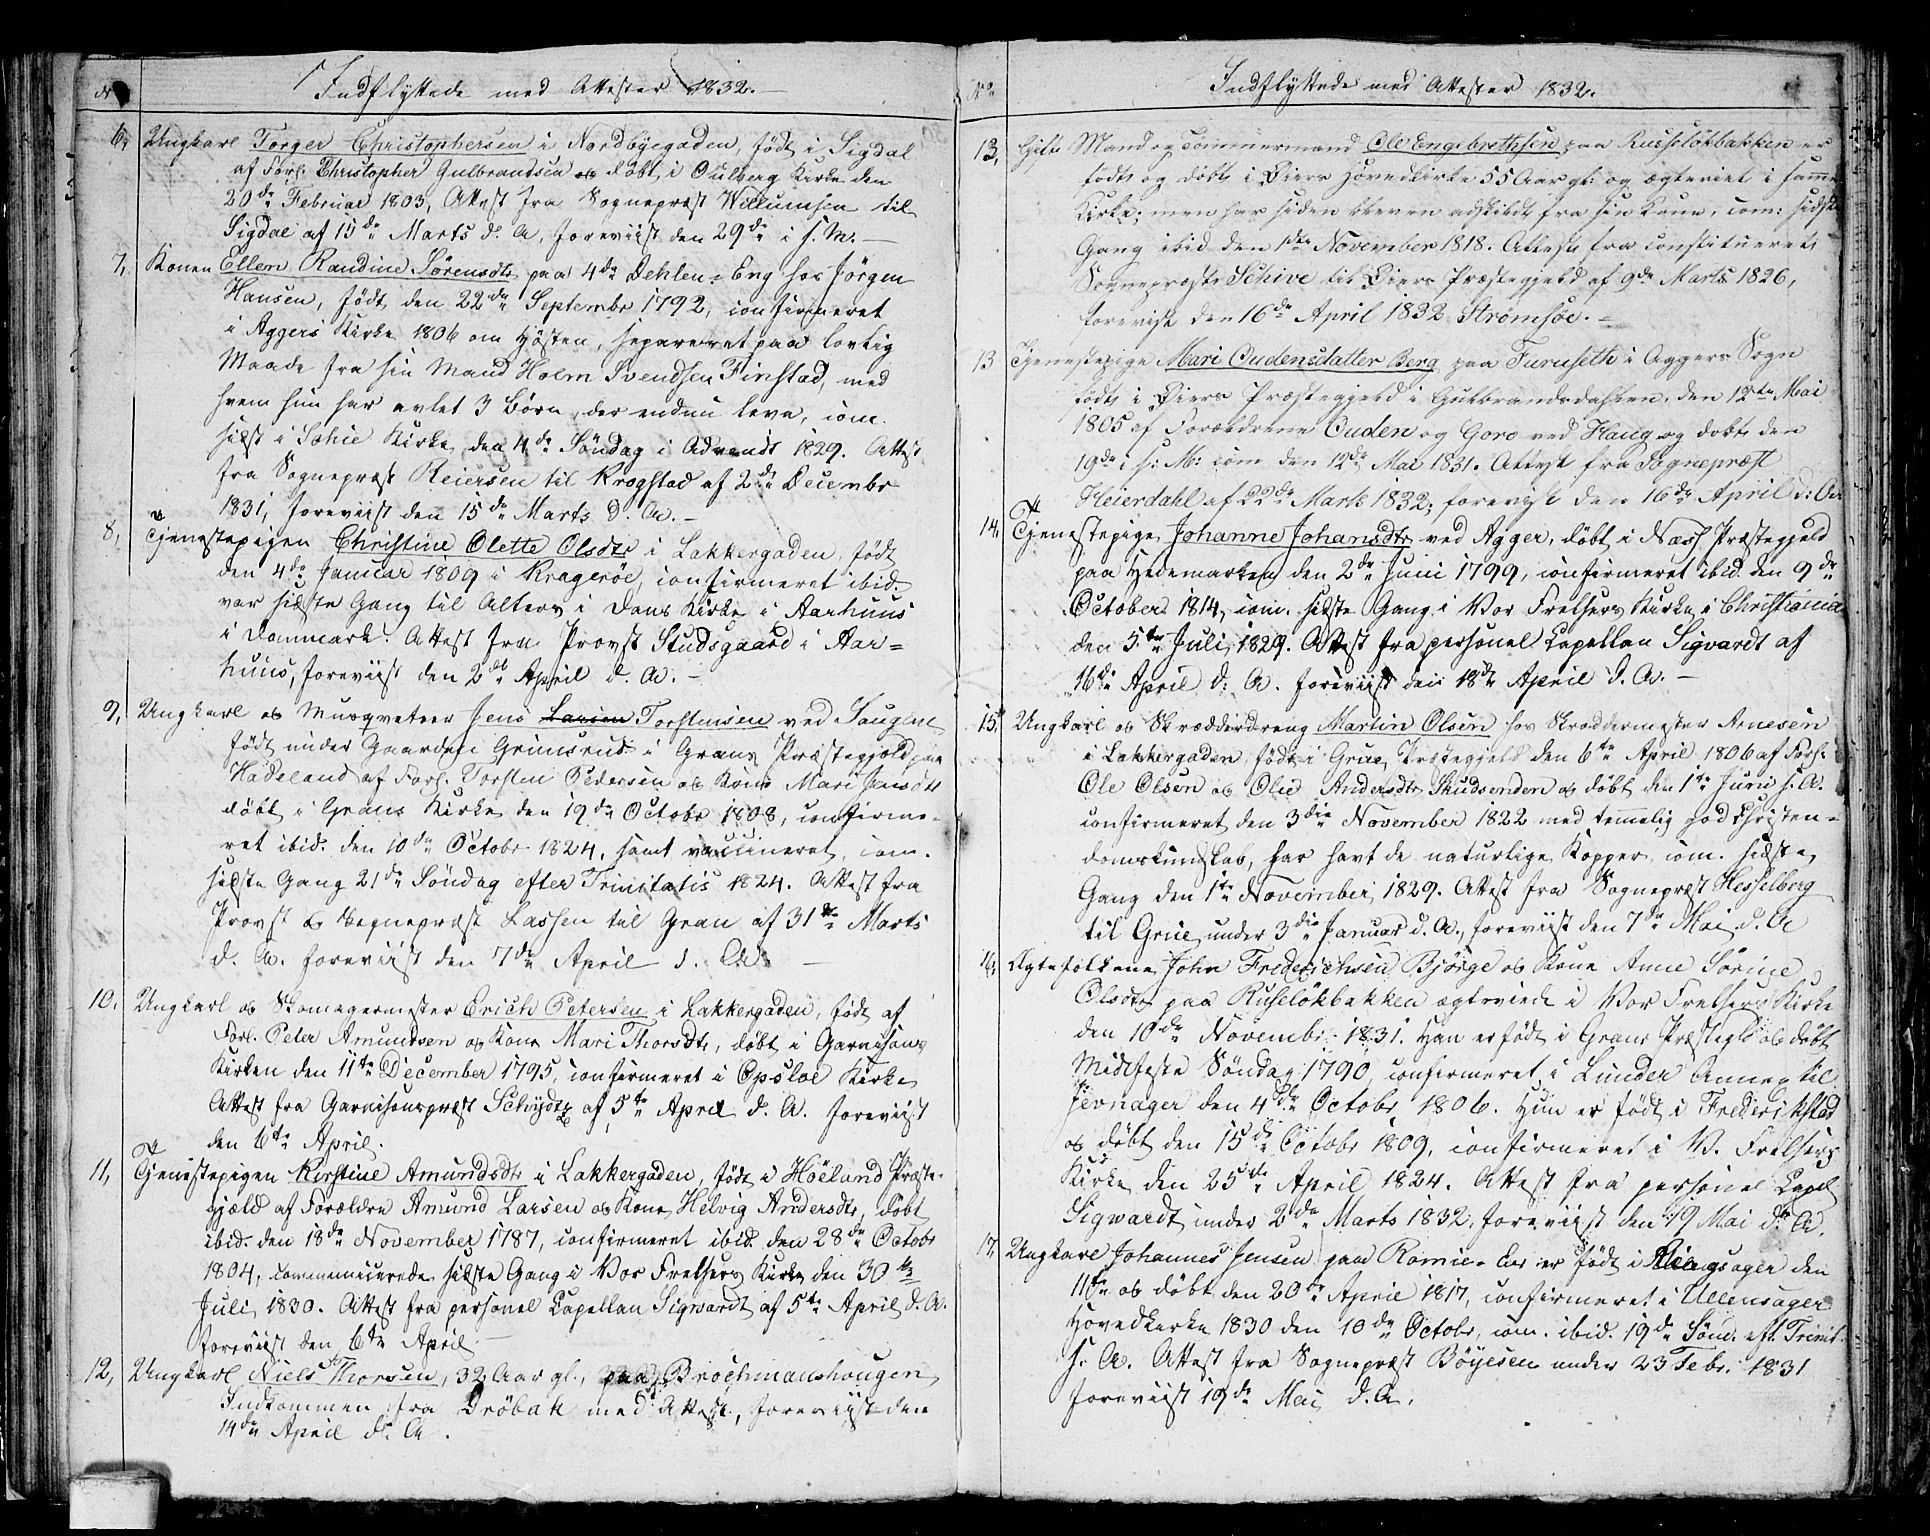 No
Indflyttede med Attester 1832.
6, Ungkarl Torger Christophersen i Nordbyegaden, född i Sigdal
af Forl: Christopher Gulbrandsen og döbt i Kirke den
20de Februar 1803, Attest fra Sognepræst Willumsen til
Sigdal af 15de Marts d. A, foreviist den 29de i s. M.
7, Konen Ellen Randine Sørensdtr paa 4de Dehlen-Eng hos Jörgen
Hansen, född den 22de Septembr 1792, confirmeret
i Aggers Kirke 1806 om Hösten, separeret paa lovlig
Maade fra sin Mand Holm Svendsen Finstad, med
hvem hun har avlet 3 Börn, der endnu leve, com.
sidst i Kirke den 4de Söndag i Advendt 1829. Attest
fra Sognepræst Reiersen til Krogstad af 2de Decembr
1831, foreviist den 15de Marts d. A.
8, Tjenestepigen Christine Olette Olsdtr i Lakkergaden, född
den 4de Januar 1809 i Kragerøe, confirmeret ibid.
var sidste Gang til Alters i Doms Kirke i Aarhuus
i Danmark. Attest fra Provst Studsgaard i Aar=
huus, foreviist den 2de April d. A.
9, Ungkarl og Musqveteer Jens Larsen Torstensen ved Saugene
född under Gaarden Grimsrud i Grans Præstegjeld paa
Hadeland af Forl. Torsten Pedersen og Kone Mari Jensdtr
döbt i Grans Kirke den 19de Octobr 1808, confirme=
ret ibid. den 10de Octobr 1824, samt vaccineret, com.
sidste Gang 21de Söndag efter Trinitatis 1824. Attest fra
Provst og Sognepræst Lassen til Gran af 31te Marts
d. A. foreviist den 7de April d. A.
10, Ungkarl og Skomagermester Erich Petersen i Lakkergaden, född af
Forl. Peter Amundsen og Kone Mari Thorsdtr, döbt i Garnisons
Kirken den 11te December 1795, confirmeret i Opsloe Kirke
Attest fra Garnisonspræst Schydtz af 5te April d. A. foreviist
den 6te April.
11, Tjenestepigen Kirstine Amundsdtr i Lakkergaden, född i Höeland Præste=
gjeld af Forældre Amund Larsen og Kone Helvig Andersdtr, döbt
ibid. den 18de November 1787, confirmeret ibid. den 28de Octobr
1804, communicerede sidste Gang i Vor Frelsers Kirke den 30te
Juli 1830. Attest fra personel Capellan Sigwardt af 5te April d. A.
foreviist den 6te April.
12, Ungkarl Niels Thorsen, 32 Aar gl., paa Brochmanshougen
Indkommen fra Dröbak med Attest, foreviist den
14de April d. A.
No
Indflyttede med Attester 1832.
13, Gift Mand og Tömmermand Ole Engebrethsen paa Russelökbakken er
födt og döbt i Öiers Hovedkirke 55 Aar gl: og ægteviet i samme
Kirke; men har siden bleven adskildt fra sin Kone, com: sidste
Gang ibid den 1ste November 1818. Attest fra constitueret
Sognepræst Schive til Öiers Præstegjeld af 9de Marts 1826,
forevist den 16de April 1832 Strömsöe.
13 Tjenestepige Mari Oudensdatter Berg paa Furuseth i Aggers Sogn
födt i Öiers Præstegjeld i Gulbrandsdahlen, den 12te Mai
1805 af Forældrene Ouden og Goro ved Haug og döbt den
19de i s: M: com den 12de Mai 1831. Attest fra Sognepræst
Heierdahl af 22de Marts 1832; forevist den 16de April d: A
14, Tjenestepige Johanne Johansdtr ved Agger, döbt i Næss Præstegjeld
paa Hedemarken den 2de Juni 1799, confirmeret ibid. den 9de
October 1814, com. sidste Gang i Vor Frelsers Kirke i Christiania
den 5te Juli 1829. Attest fra personel Capellan Sigvardt af
16de April d: A. foreviist den 18de April d. A.
15, Ungkarl og Skrædderdreng Martin Olsen hos Skreddermester Arnesen
i Lakkergaden, född i Grue Præstegjeld den 6te April 1806 af Forl:
Ole Olsen og Olia Andersdtr Skudsenden og döbt den 1te Juni s. A.
confirmeret den 3die November 1822 med temmelig god Christen=
domskundskab, har havt de naturlige Kopper, com. sidste
Gang den 1te November 1829. Attest fra Sognepræst Hesselberg
til Grue under 3die Januar d. A., foreviist den 7de Mai d. A
16, Ægtefolkene John Frederichsen Björge og Kone Anne Sörine
Olsdtr paa Ruselökbakken ægteviede i Vor Frelsers Kirke
den 10de Novembr 1831. Han er född i Grans Præstegld og döbt
Midfaste Söndag 1790, confirmeret i Lunder Annex til
Jevnager den 4de Octobr 1806. Hun er född i Frederichstad
og döbt den 15de Octobr 1809, confirmeret i V. Frelsers
Kirke den 25de April 1824. Attest fra personel Capel
Sigwardt under 2de Marts 1832, foreviist den 19 Mai d. A.
17, Ungkarl Johannes Jensen paa Romie er född i Ullensager den
11te og döbt den 20de April 1817, confirmeret i Ullensager
Hovedkirke 1830 den 10de Octobr, com. ibid. 19de Sönd. eft. Trinit
s. A. Attest fra Sognepræst Böyesen under 23 Febr. 1831
foreviist 19de Mai d. A.